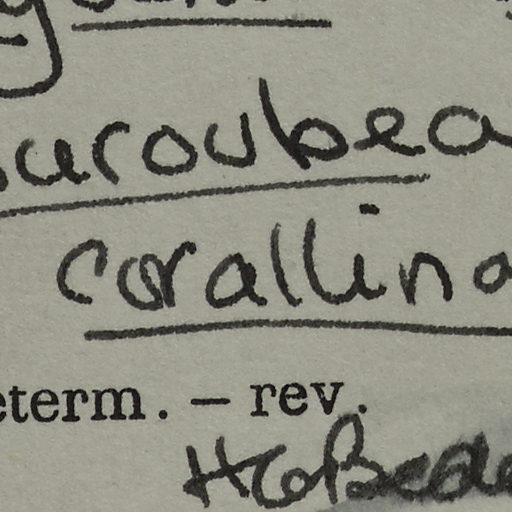 ouroubea
corallina
eterm. – rev.
HGBede